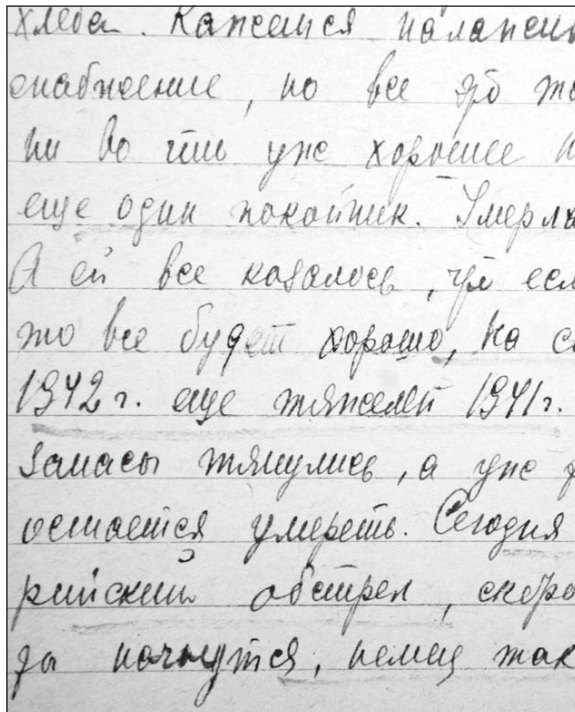 хлеба. Кажется налажен
снабжение, но все это
ни во что уже хорошее
еще один покойник. Умерла
А ей все казалось, что есл
то все будет хорошо, на
1942 г. еще тяжелей 1941 г.
Запасы тянулись, а уже
остается умереть. Сегодня
рийский обстрел, скоро
да начнутся, немец так